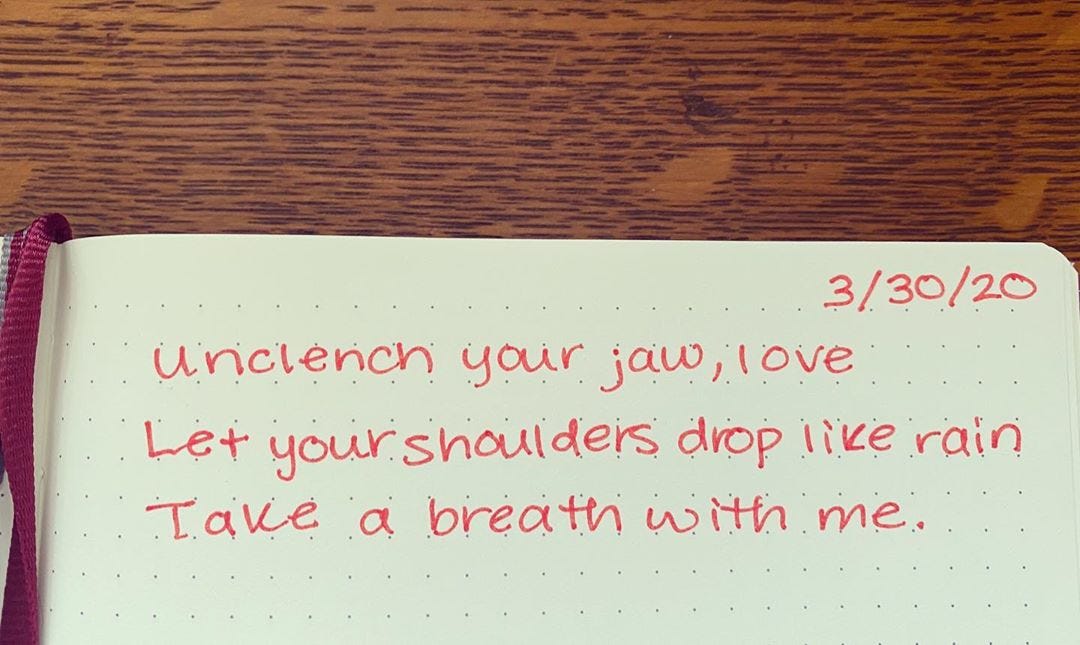 3/30/20
Unclench your jaw, love
Let your shoulders drop like rain
Take a breath with me.